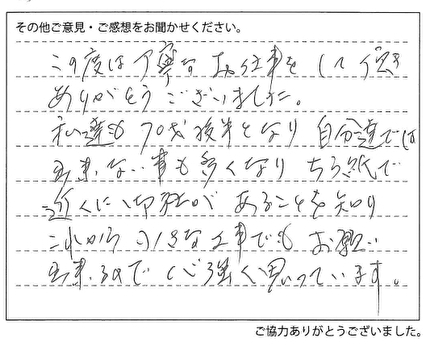 その他ご意見・ご感想をお聞かせください。
この度は丁寧なお仕事をして頂き
ありがとうございました。
私達も70代後半となり自分達では
出来ない事も多くなりちらし紙で
近くに御社があることを知り
これから小さな工事でもお願い
出来るので心強く思っています。
ご協力ありがとうございました。